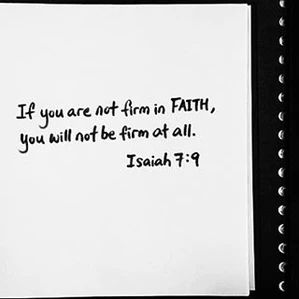 If you are not firm in FAITH,
you will not be firm at all.
Isaiah 7:9